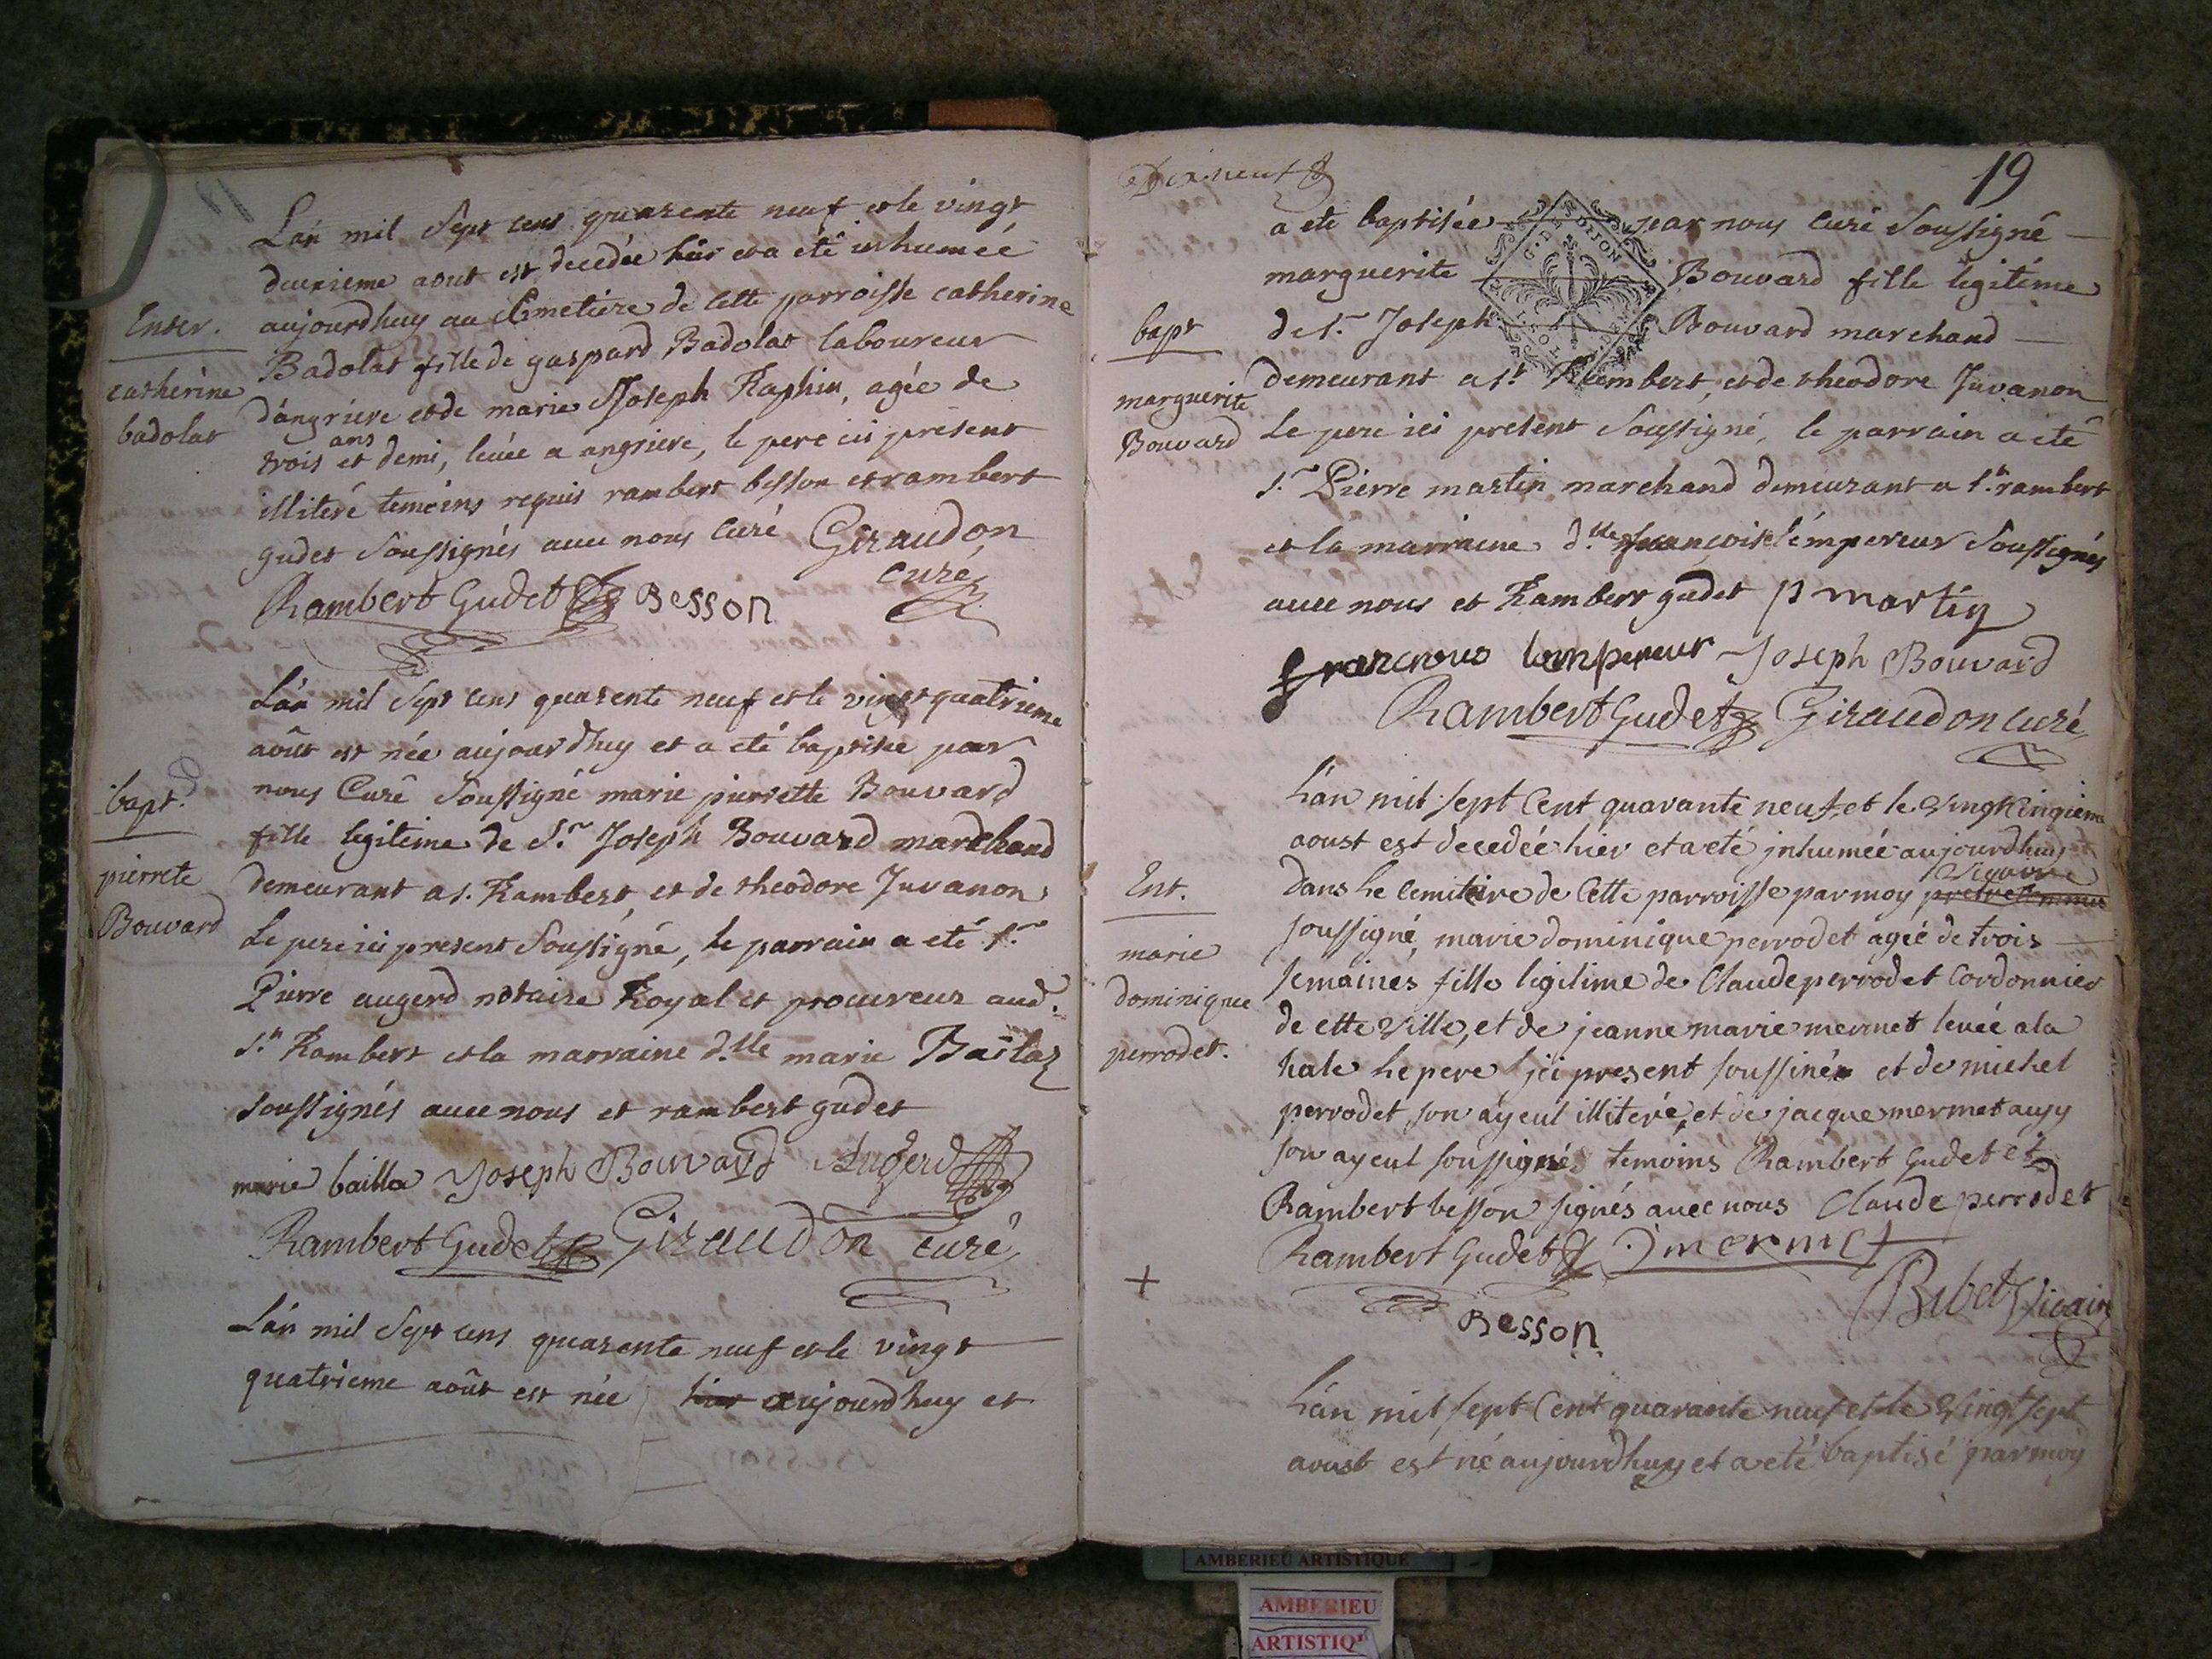 L'an mil Sept cens quarente neuf et le vingt
deuxieme aout est decedée hier et a eté inhumeé
aujourdhuy au Cimetiere de Cette parroisse catherine
Badolat fille de gaspard Badolat laboureur
d'angriere et de marie Joseph Raphin, agée de
ans
trois et demi, levée a angriere, le pere ici present
illiteré temoins requis rambert besson et rambert
gudet Soussignés avec nous Curé Giraudon
curé
Rambert Gudet Besson
Enter.
catherine
badolat
L'an mil Sept cens quarente neuf et le vingt quatrieme
août est née aujourdhuy et a eté baptisée par
nous Curé Soussigné marie pierrette Bouvard
fille legitime de S.r Joseph Bouvard marchand
demeurant a s. Rambert, et de theodore Juvanon
Le pere ici present Soussigné, le parrain a eté s.r
Pierre augerd notaire Royal et procureur aud.
S.t Rambert et la marraine d.lle marie Baillaz
Soussignés avec nous et rambert gudet
marie bailla Joseph Bouvard Augerd
Rambert Gudet Giraudon curé
bapt.
pierrete
Bouvard
L'an mil Sept cens quarente neuf et le vingt
quatrieme août est née hier aujourdhuy et
Dix neuf
19
a eté baptisée par nous Curé Soussigné
marguerite Bouvard fille legitime
de S.r Joseph Bouvard marchand
demeurant a S.t Rambert, et de theodore Juvanon
Le pere ici present Soussigné, le parrain a eté
S.r Pierre martin marchand demeurant a S.t rambert
et la marraine d.lle françoise l'empereur Soussignés
avec nous et Rambert gudet p martin
lampereur Joseph Bouvard
Rambert Gudet Giraudon curé
G. DE DIJON
bapt
marguerite
Bouvard
L'an mil sept Cent quarante neuf, et le vingt cinqieme
aoust est decedeé hier et a eté jnhumeé aujourdhuy
Vicaire
dans le cemitiere de Cette parroisse par moy pretre
soussigné, marie dominique perrodet ageé de trois
semaines fille legitime de Claude perrodet Cordonnier
de cette ville, et de jeanne marie mermet leveé a la
hale le pere jci present soussiné et de michel
perrodet son ayeul illiteré, et de jacque mermet aussy
son ayeul soussignés temoins Rambert Gudet et
Rambert besson signés avec nous Claude perrodet
Rambert Gudet J mermet
Besson
Bibet Vicaire
Ent.
marie
dominique
perrodet.
+
L'an mil sept Cent quarante neuf et le vingt sept
aoust est né aujourdhuy et a eté baptisé par moy
AMBERIEU ARTISTIQUE
AMBERIEU
ARTISTIQ